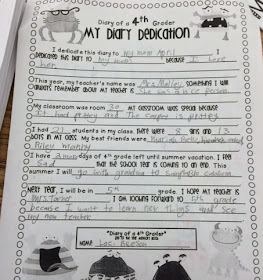 Diary of a 4th Grader
MY DIARY DEDICATION
I dedicate this diary to my mom April. I
dedicated this diary to my mom because I love
her.
This year, my teacher's name was Mrs. Malley. Something I will
always remember about my teacher is she was a nice person.
My classroom was room 30. My classroom was special because
it had pretty and the carpey is pretey
I had 21 students in my class. There were 8 girls and 13
boys in my class. My best friends were
Riley
I have a days of 4th grade left until summer vacation. I feel
sad that the school year is coming to an end. This
summer I will go with grandma to
Next year, I will be in 5th grade. I hope my teacher is
Mrs. I am looking forward to 5th grade
because I want to learn new things and see
my new teacher.
"Diary of a 4th Grader"
NAME: